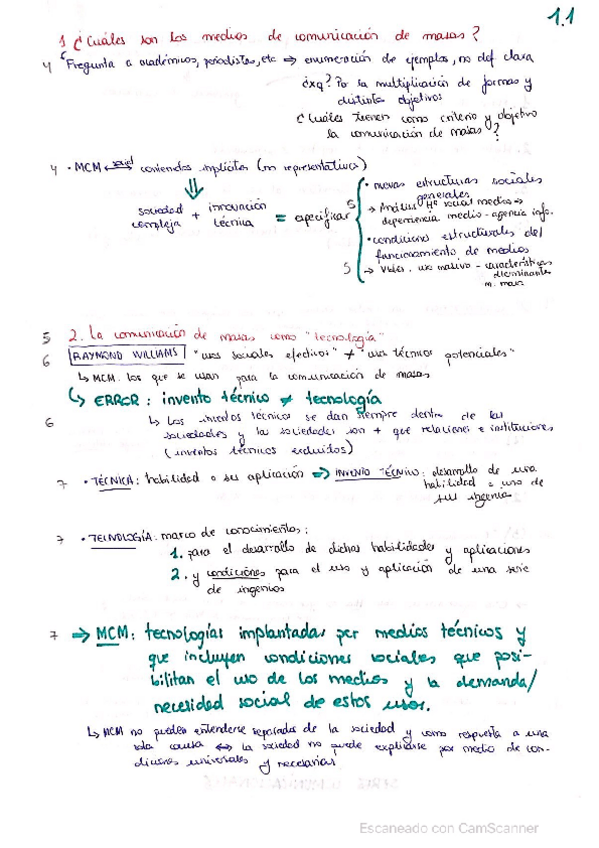 1.1
1 ¿Cuáles son los medios de comunicación de masas?
4 Pregunta a académicos, periodistas, etc ⇒ enumeración de ejemplos, no def clara
¿xq? Por la multiplicación de formas y
distintos objetivos
¿Cuáles tienen como criterio y objetivo
la comunicación de masas?
4 · MCM ↔ contenidos implícitos (m representativos)
sociedad compleja + innovación técnica = especificar
· nuevas estructuras sociales
generales
5 → Análisis Hº social medios →
dependencia medio - agencia info.
· condiciones estructurales del
funcionamiento de medios
5 → uso masivo - características
m. masas
5 2. La comunicación de masas como "tecnología"
6 RAYMOND WILLIAMS "usos sociales efectivos" ≠ "usos técnicos potenciales"
↳ MCM: los que se usan para la comunicación de masas
↳ ERROR: invento técnico ≠ tecnología
6 ↳ Los inventos técnicos se dan siempre dentro de las
sociedades y las sociedades son + que relaciones e instituciones
(inventos técnicos excluidos)
7 · TÉCNICA: habilidad o su aplicación ⇒ INVENTO TÉCNICO: desarrollo de una
habilidad o uno de
sus ingenios
7 · TECNOLOGÍA: marco de conocimientos:
1. para el desarrollo de dichas habilidades y aplicaciones
2. y condiciones para el uso y aplicación de una serie
de ingenios
7 ⇒ MCM: tecnologías implantadas por medios técnicos y
que incluyen condiciones sociales que posi-
bilitan el uso de los medios y la demanda/
necesidad social de estos usos.
↳ MCM no pueden entenderse separados de la sociedad y como respuesta a una
sola causa ↔ la sociedad no puede explicarse por medio de con-
diciones universales y necesarias
Escaneado con CamScanner